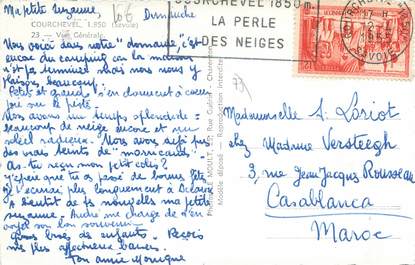 Ma petite Suzanne.
10 €
Dimanche
COURCHEVEL, 1.850 (Savoie)
23 — Vue Générale.
Nous voici dans notre "domaine", c'est
encore du camping car la maison
n'est pas terminée mais nous nous y
plaisons beaucoup.
Petits et grands s'en donnent à cœur
joie sur la piste.
Nous avons un temps splendide :
beaucoup de neige encore et un
soleil radieux. Nous avons
des
vrais teints de "marocains".
As-tu reçu mon petit colis?
J'espère que tu as passé de bonnes fêtes
plus longuement
bientôt de tes nouvelles ma petite
Suzanne. André me charge de t'en
voyer son bon souvenir.
Bons baisers des enfants. Reçois
mes plus affectueux baisers.
Ton amie Monique
MOULT, 28, Rue Guérin - Charenton
Modèle déposé - Reproduction interdite
COURCHEVEL 1850 m.
LA PERLE
DES NEIGES
COURCHEVEL
73
Mademoiselle S. Loriot
chez Madame Versteegh
3, rue Jean Jacques Rousseau
Casablanca
Maroc